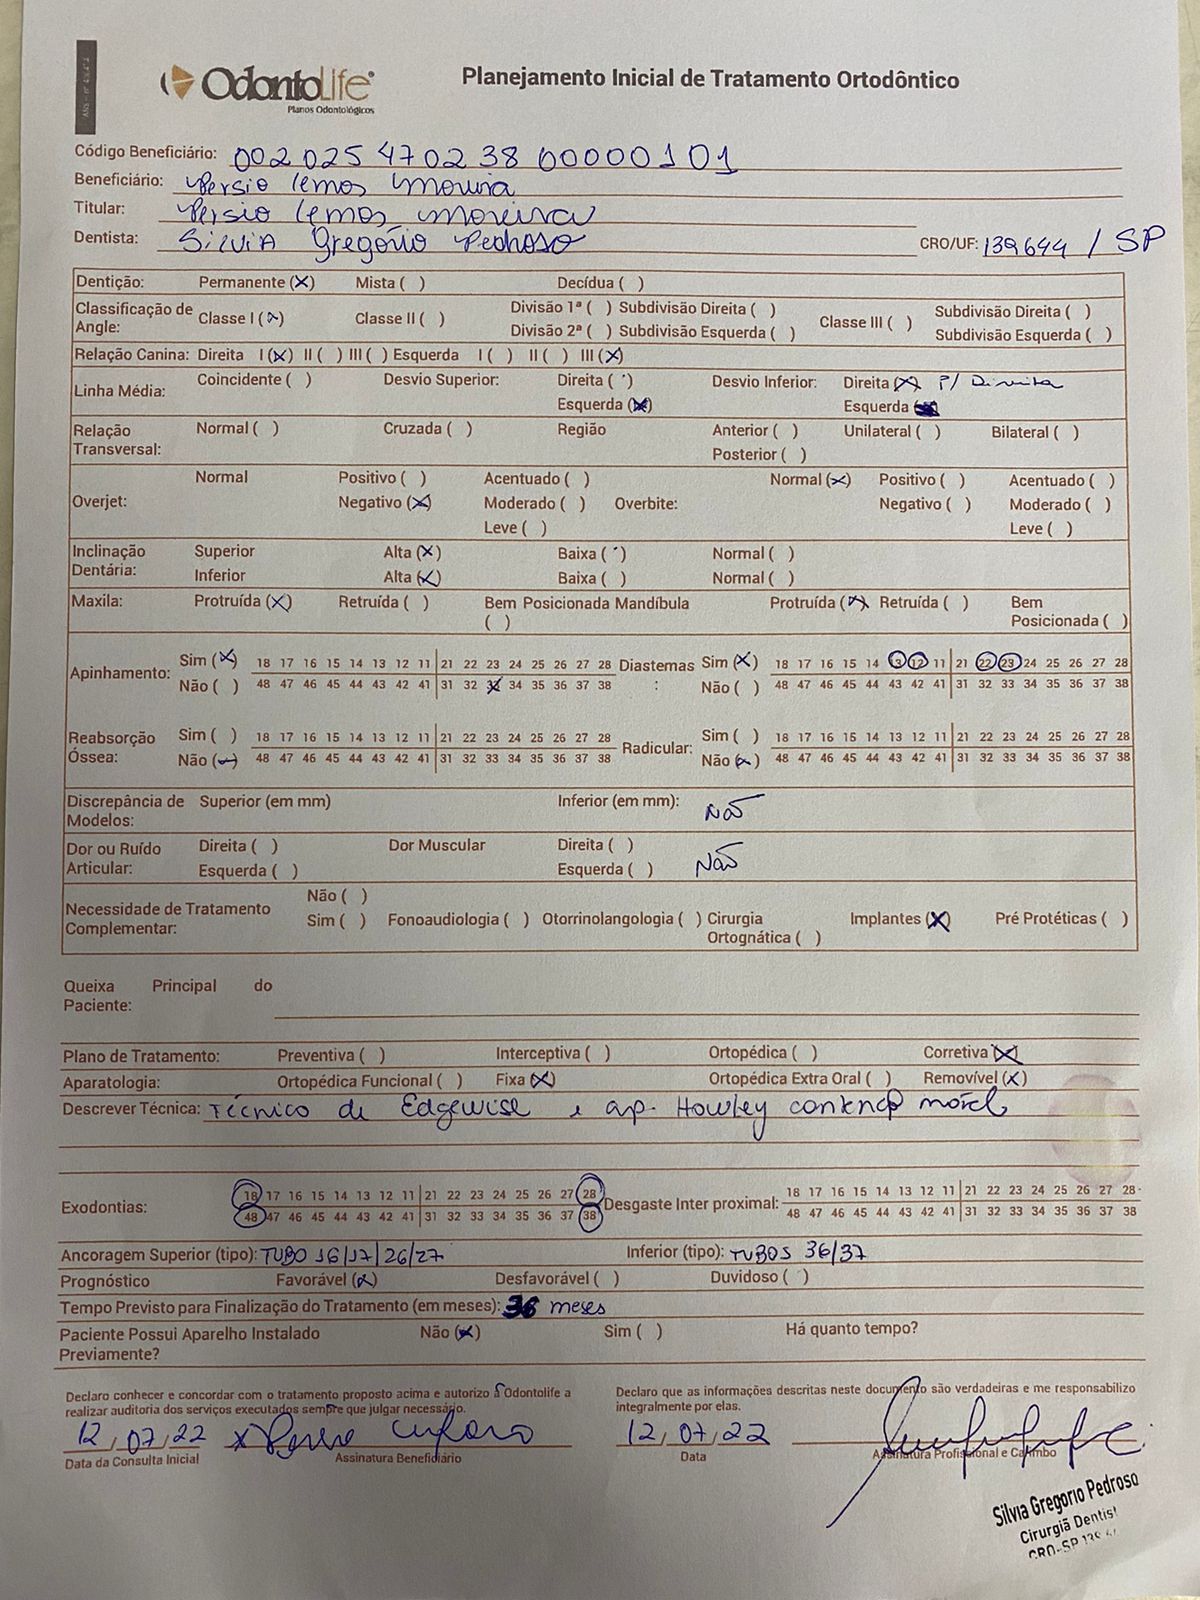 OdontoLife
Planos Odontológicos
Planejamento Inicial de Tratamento Ortodôntico
Código Beneficiário: 002025 470238 00000101
Beneficiário: Persio Lemos Moreira
Titular: Persio Lemos Moreira
Dentista: Silvia Gregório Pedroso CRO/UF: 139644 / SP
Dentição: Permanente (X) Mista ( ) Decídua ( )
Classificação de Angle: Classe I (X) Classe II ( ) Divisão 1ª ( ) Subdivisão Direita ( ) Classe III ( ) Subdivisão Direita ( )
Divisão 2ª ( ) Subdivisão Esquerda ( ) Subdivisão Esquerda ( )
Relação Canina: Direita I (X) II ( ) III ( ) Esquerda I ( ) II ( ) III (X)
Linha Média: Coincidente ( ) Desvio Superior: Direita ( ) Desvio Inferior: Direita (X) P/ Direita
Esquerda (X) Esquerda
Relação Transversal: Normal ( ) Cruzada ( ) Região Anterior ( ) Unilateral ( ) Bilateral ( )
Posterior ( )
Overjet: Normal Positivo ( ) Acentuado ( ) Overbite: Normal (X) Positivo ( ) Acentuado ( )
Negativo (X) Moderado ( ) Negativo ( ) Moderado ( )
Leve ( ) Leve ( )
Inclinação Dentária: Superior Alta (X) Baixa ( ) Normal ( )
Inferior Alta (X) Baixa ( ) Normal ( )
Maxila: Protruída (X) Retruída ( ) Bem Posicionada ( ) Mandíbula Protruída (X) Retruída ( ) Bem Posicionada ( )
Apinhamento: Sim (X) 18 17 16 15 14 13 12 11 21 22 23 24 25 26 27 28 Diastemas: Sim (X) 18 17 16 15 14 13 12 11 21 22 23 24 25 26 27 28
Não ( ) 48 47 46 45 44 43 42 41 31 32 33 34 35 36 37 38 Não ( ) 48 47 46 45 44 43 42 41 31 32 33 34 35 36 37 38
Reabsorção Óssea: Sim ( ) 18 17 16 15 14 13 12 11 21 22 23 24 25 26 27 28 Radicular: Sim ( ) 18 17 16 15 14 13 12 11 21 22 23 24 25 26 27 28
Não (X) 48 47 46 45 44 43 42 41 31 32 33 34 35 36 37 38 Não (X) 48 47 46 45 44 43 42 41 31 32 33 34 35 36 37 38
Discrepância de Modelos: Superior (em mm) Inferior (em mm): Não
Dor ou Ruído Articular: Direita ( ) Dor Muscular Direita ( )
Esquerda ( ) Esquerda ( ) Não
Necessidade de Tratamento Complementar: Não ( )
Sim ( ) Fonoaudiologia ( ) Otorrinolangologia ( ) Cirurgia Ortognática ( ) Implantes (X) Pré Protéticas ( )
Queixa Principal do Paciente:
Plano de Tratamento: Preventiva ( ) Interceptiva ( ) Ortopédica ( ) Corretiva (X)
Aparatologia: Ortopédica Funcional ( ) Fixa (X) Ortopédica Extra Oral ( ) Removível (X)
Descrever Técnica: Técnico de Edgewise e ap. Howley móvel
Exodontias: 18 17 16 15 14 13 12 11 21 22 23 24 25 26 27 28 Desgaste Inter proximal: 18 17 16 15 14 13 12 11 21 22 23 24 25 26 27 28
48 47 46 45 44 43 42 41 31 32 33 34 35 36 37 38 48 47 46 45 44 43 42 41 31 32 33 34 35 36 37 38
Ancoragem Superior (tipo): TUBO 16/17/26/27 Inferior (tipo): TUBOS 36/37
Prognóstico Favorável (X) Desfavorável ( ) Duvidoso ( )
Tempo Previsto para Finalização do Tratamento (em meses): 36 meses
Paciente Possui Aparelho Instalado Previamente? Não (X) Sim ( ) Há quanto tempo?
Declaro conhecer e concordar com o tratamento proposto acima e autorizo à Odontolife a
realizar auditoria dos serviços executados sempre que julgar necessário.
Declaro que as informações descritas neste documento são verdadeiras e me responsabilizo
integralmente por elas.
12/07/22 X 12/07/22
Data da Consulta Inicial Assinatura Beneficiário Data Assinatura Profissional e Carimbo
Silvia Gregorio Pedroso
Cirurgiã Dentist
CRO-SP